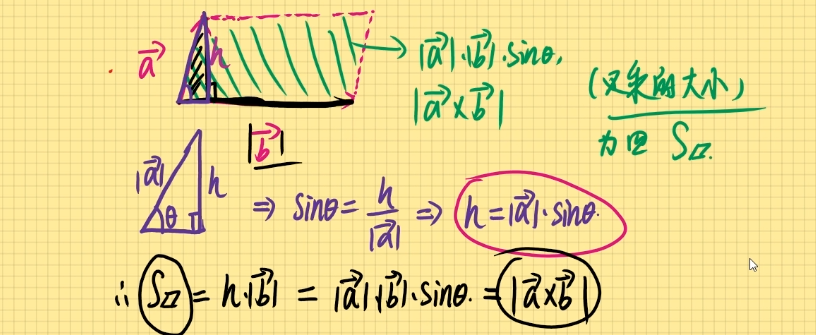 a⃗
h
|a⃗|·|b⃗|·sinθ.
|a⃗×b⃗|
(叉乘的大小)
为四 S▱.
|b⃗|
|a⃗|
h
θ
⇒ sinθ = h/|a⃗| ⇒ h=|a⃗|·sinθ.
∴ S▱ = h·|b⃗| = |a⃗|·|b⃗|·sinθ. = |a⃗×b⃗|